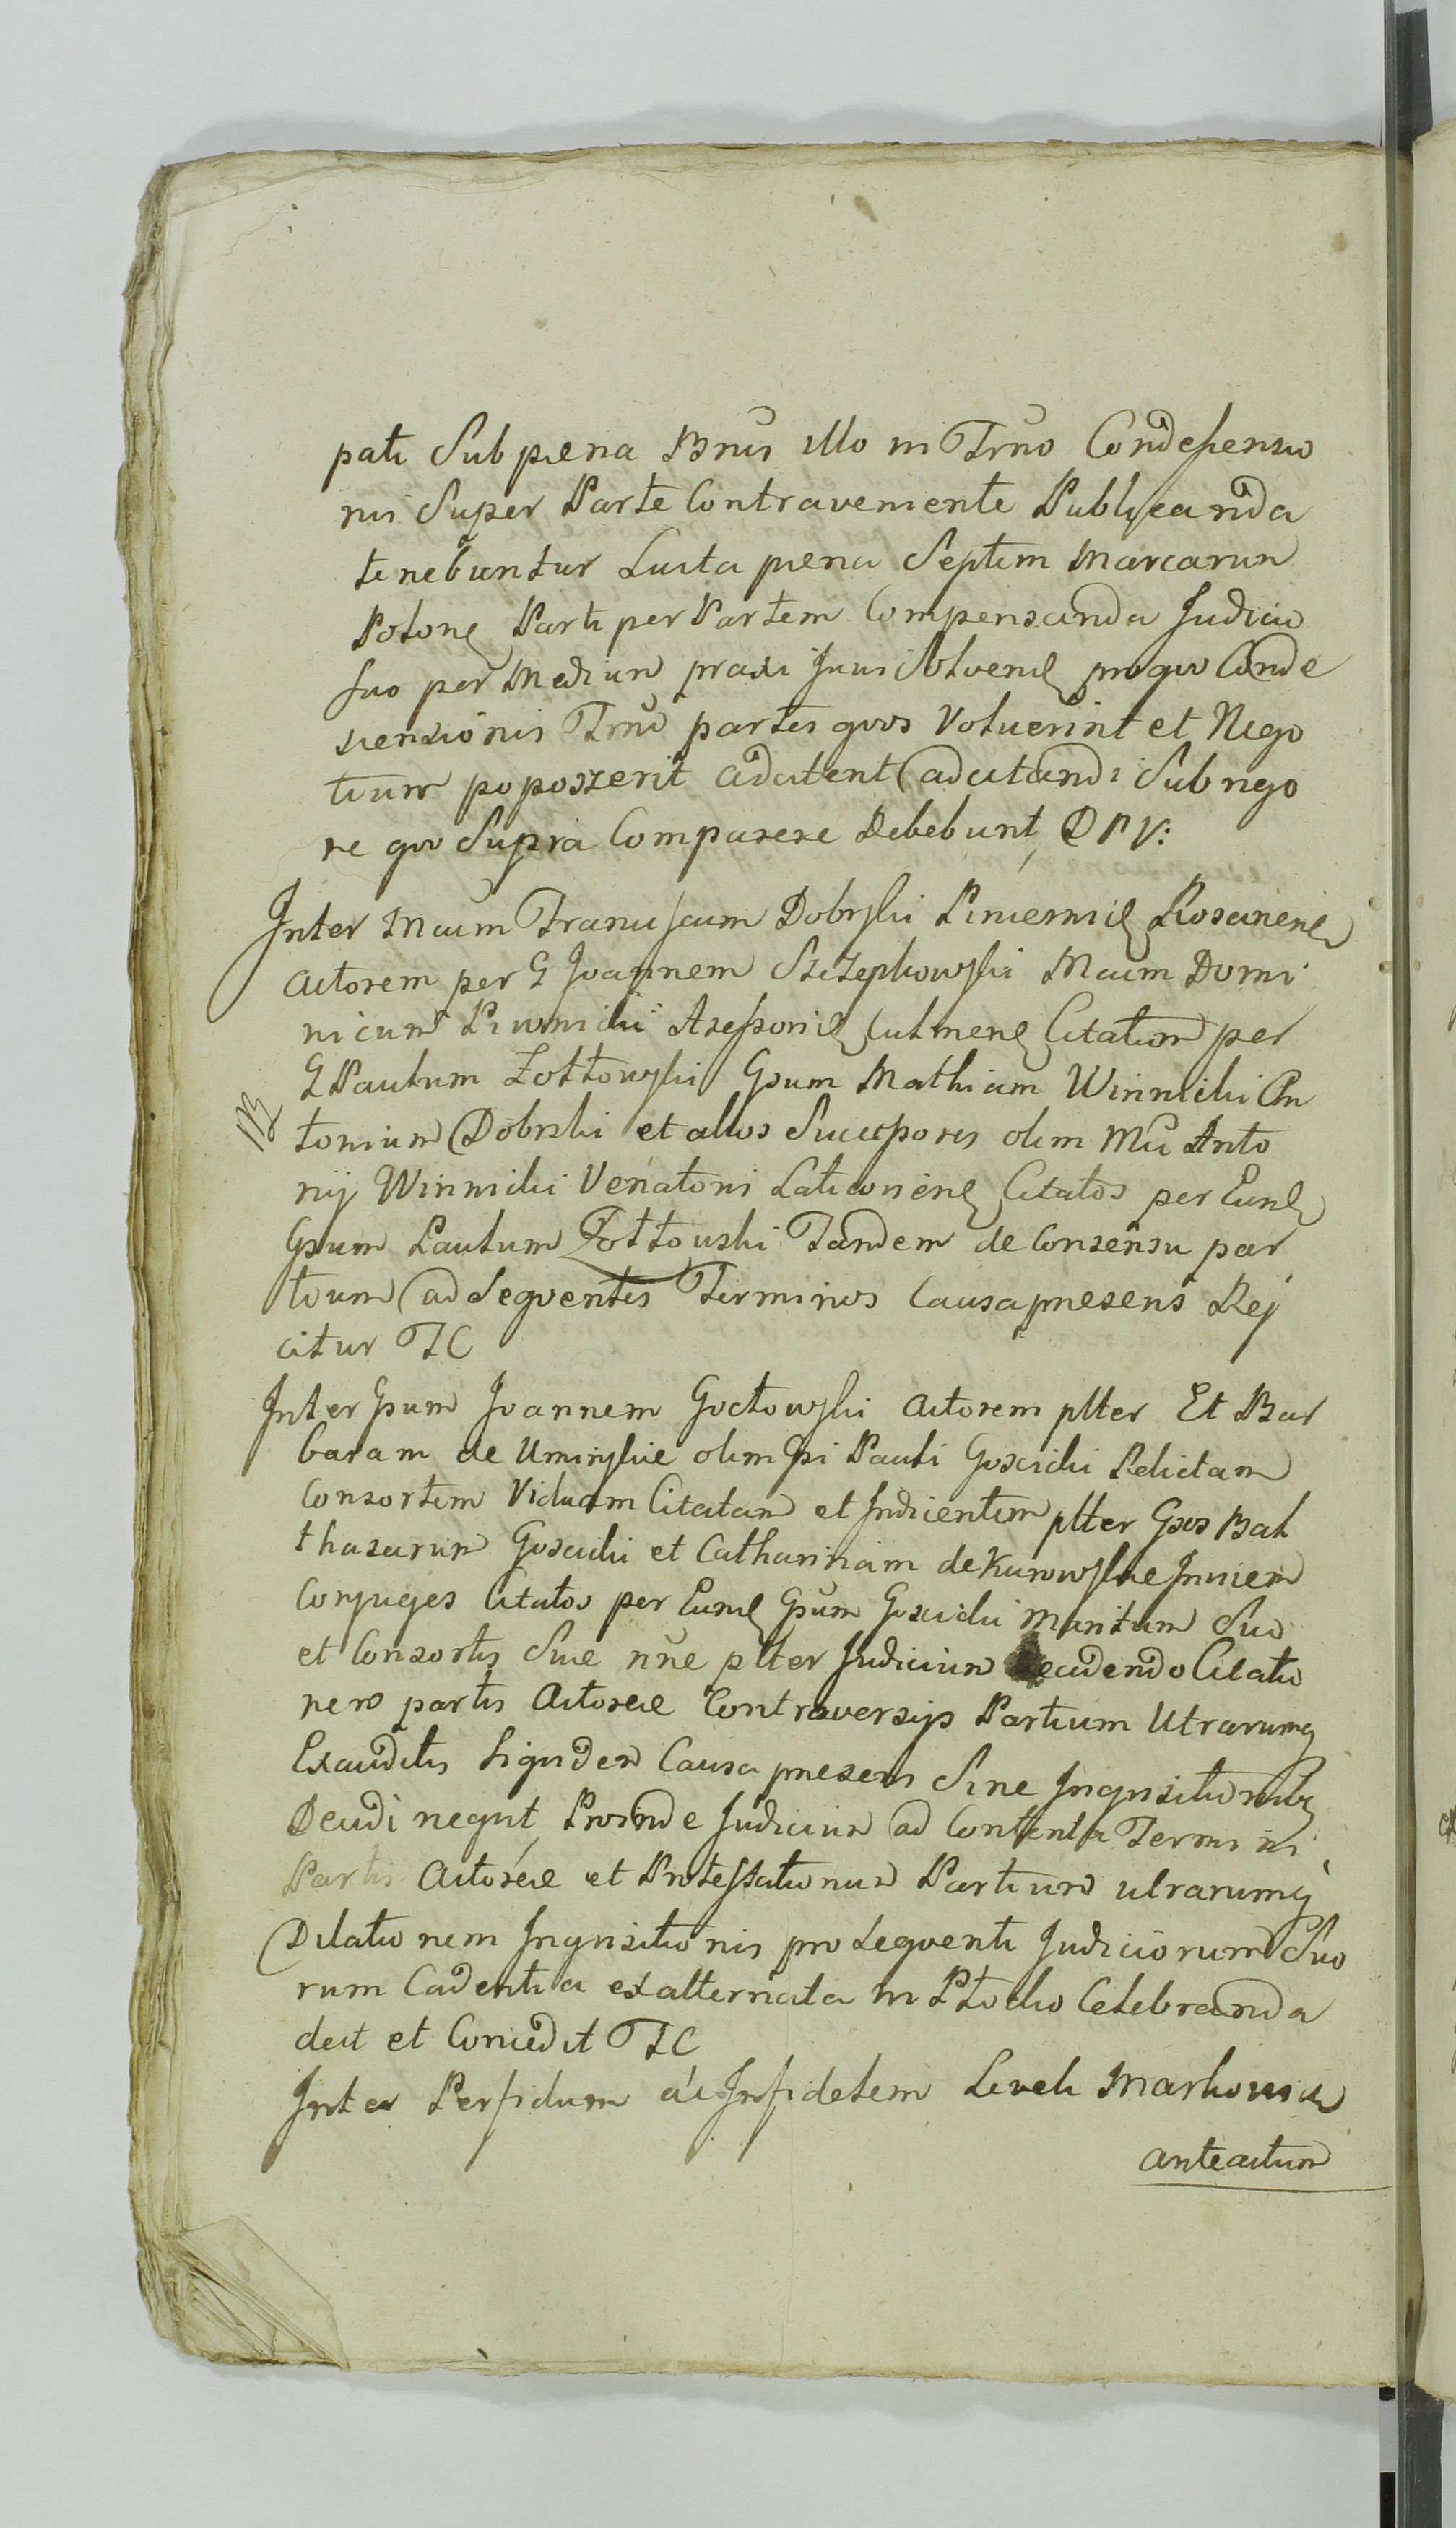 pati Sub pæna Bnis illo in Trno Condessensio
nis Super Parte Contraveniente Publicanda
tenebuntur Luita pæna Septem Marcarum
Polonę Parti per Partem Compensanda Judicio
suo per Medium praxi Juris Solvenę pro quo Conde
scensionis Trno partes quos Voluerint et Nego
tium poposzerit adcitent adcitandi Sub rigo
re quo Supra Comparere Debebunt, D P V:
Inter Mcum Franciscum Dobrski Pincernię Rosanenę
Actorem per G Joannem Szczepkowski Mcum Domi
nicum Winnicki Assessorię Culmenę Citatum per
G Paulum Żołtowski Gsum Mathiam Winnicki An
NB
tonium Dobrski et alios Successores olim Mci Anto
nij Winnicki Venatoris Laticoviensę Citatos per Eunę
Gsum Paulum Żołtowski Tandem de Consensu par
tium ad Seqventes Terminos Causa præsens Rej
citur TC
Inter Gsum Joannem Goctowski Actorem plter Et Bar
baram de Uminskie olim Gsi Pauli Goscicki Relictam
Consortem Viduam Citatam et Indicentem plter Gsos Bal
thasarum Goscicki et Catharinam de Kurowskie Invicem
Conjuges Citatos per Eunę Gsum Goscicki Maritum Suo
et Consortis Suæ nne plter Judicium decidendo Citatio
nem partis Actoreæ Controversijs Partium Utrarumq
Exauditis Siquidem Causa præsens Sine Inquisitionibq
Decidi nequit, Proinde Judicium ad Contenta Termini
Partis Actoreæ et Protestationum Partium utrarumq
Dilationem Inquisitionis pro Seqventi Judiciorum Suo
rum Cadentia exalternata in Płocko Celebranda
dedit et Concedit TC
Inter Perfidum ac Infidelem Levek Markowicz
anteactum